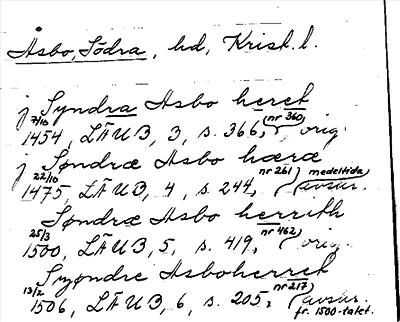 Åsbo, Södra, hd, Krist. l.
j Syndra Asbo heret
7/10 1454, LÄUB, 3, s. 366, (nr 360) orig.
j Søndræ Asbo hæræ
22/10 1475, LÄUB, 4, s. 244, (nr 261) medeltida avskr.
Søndræ Asbo herrith
25/3 1500, LÄUB, 5, s. 419, (nr 462) orig.
Syøndre Asboherret
13/2 1506, LÄUB, 6, s. 205, (nr 217) avskr. fr. 1500-talet.